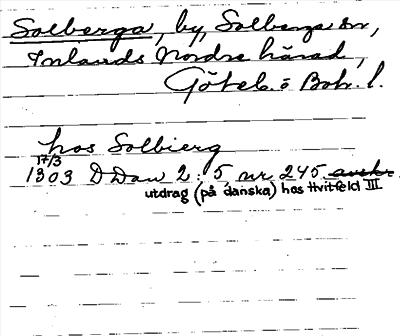 Solberga, by, Solberga sn,
Inlands Nordre härad,
Göteb. o Boh. l.
hos Solbierg
17/3
1303 D Dan 2:5 nr 245 avskr.
utdrag (på danska) hos Hvitfeld III